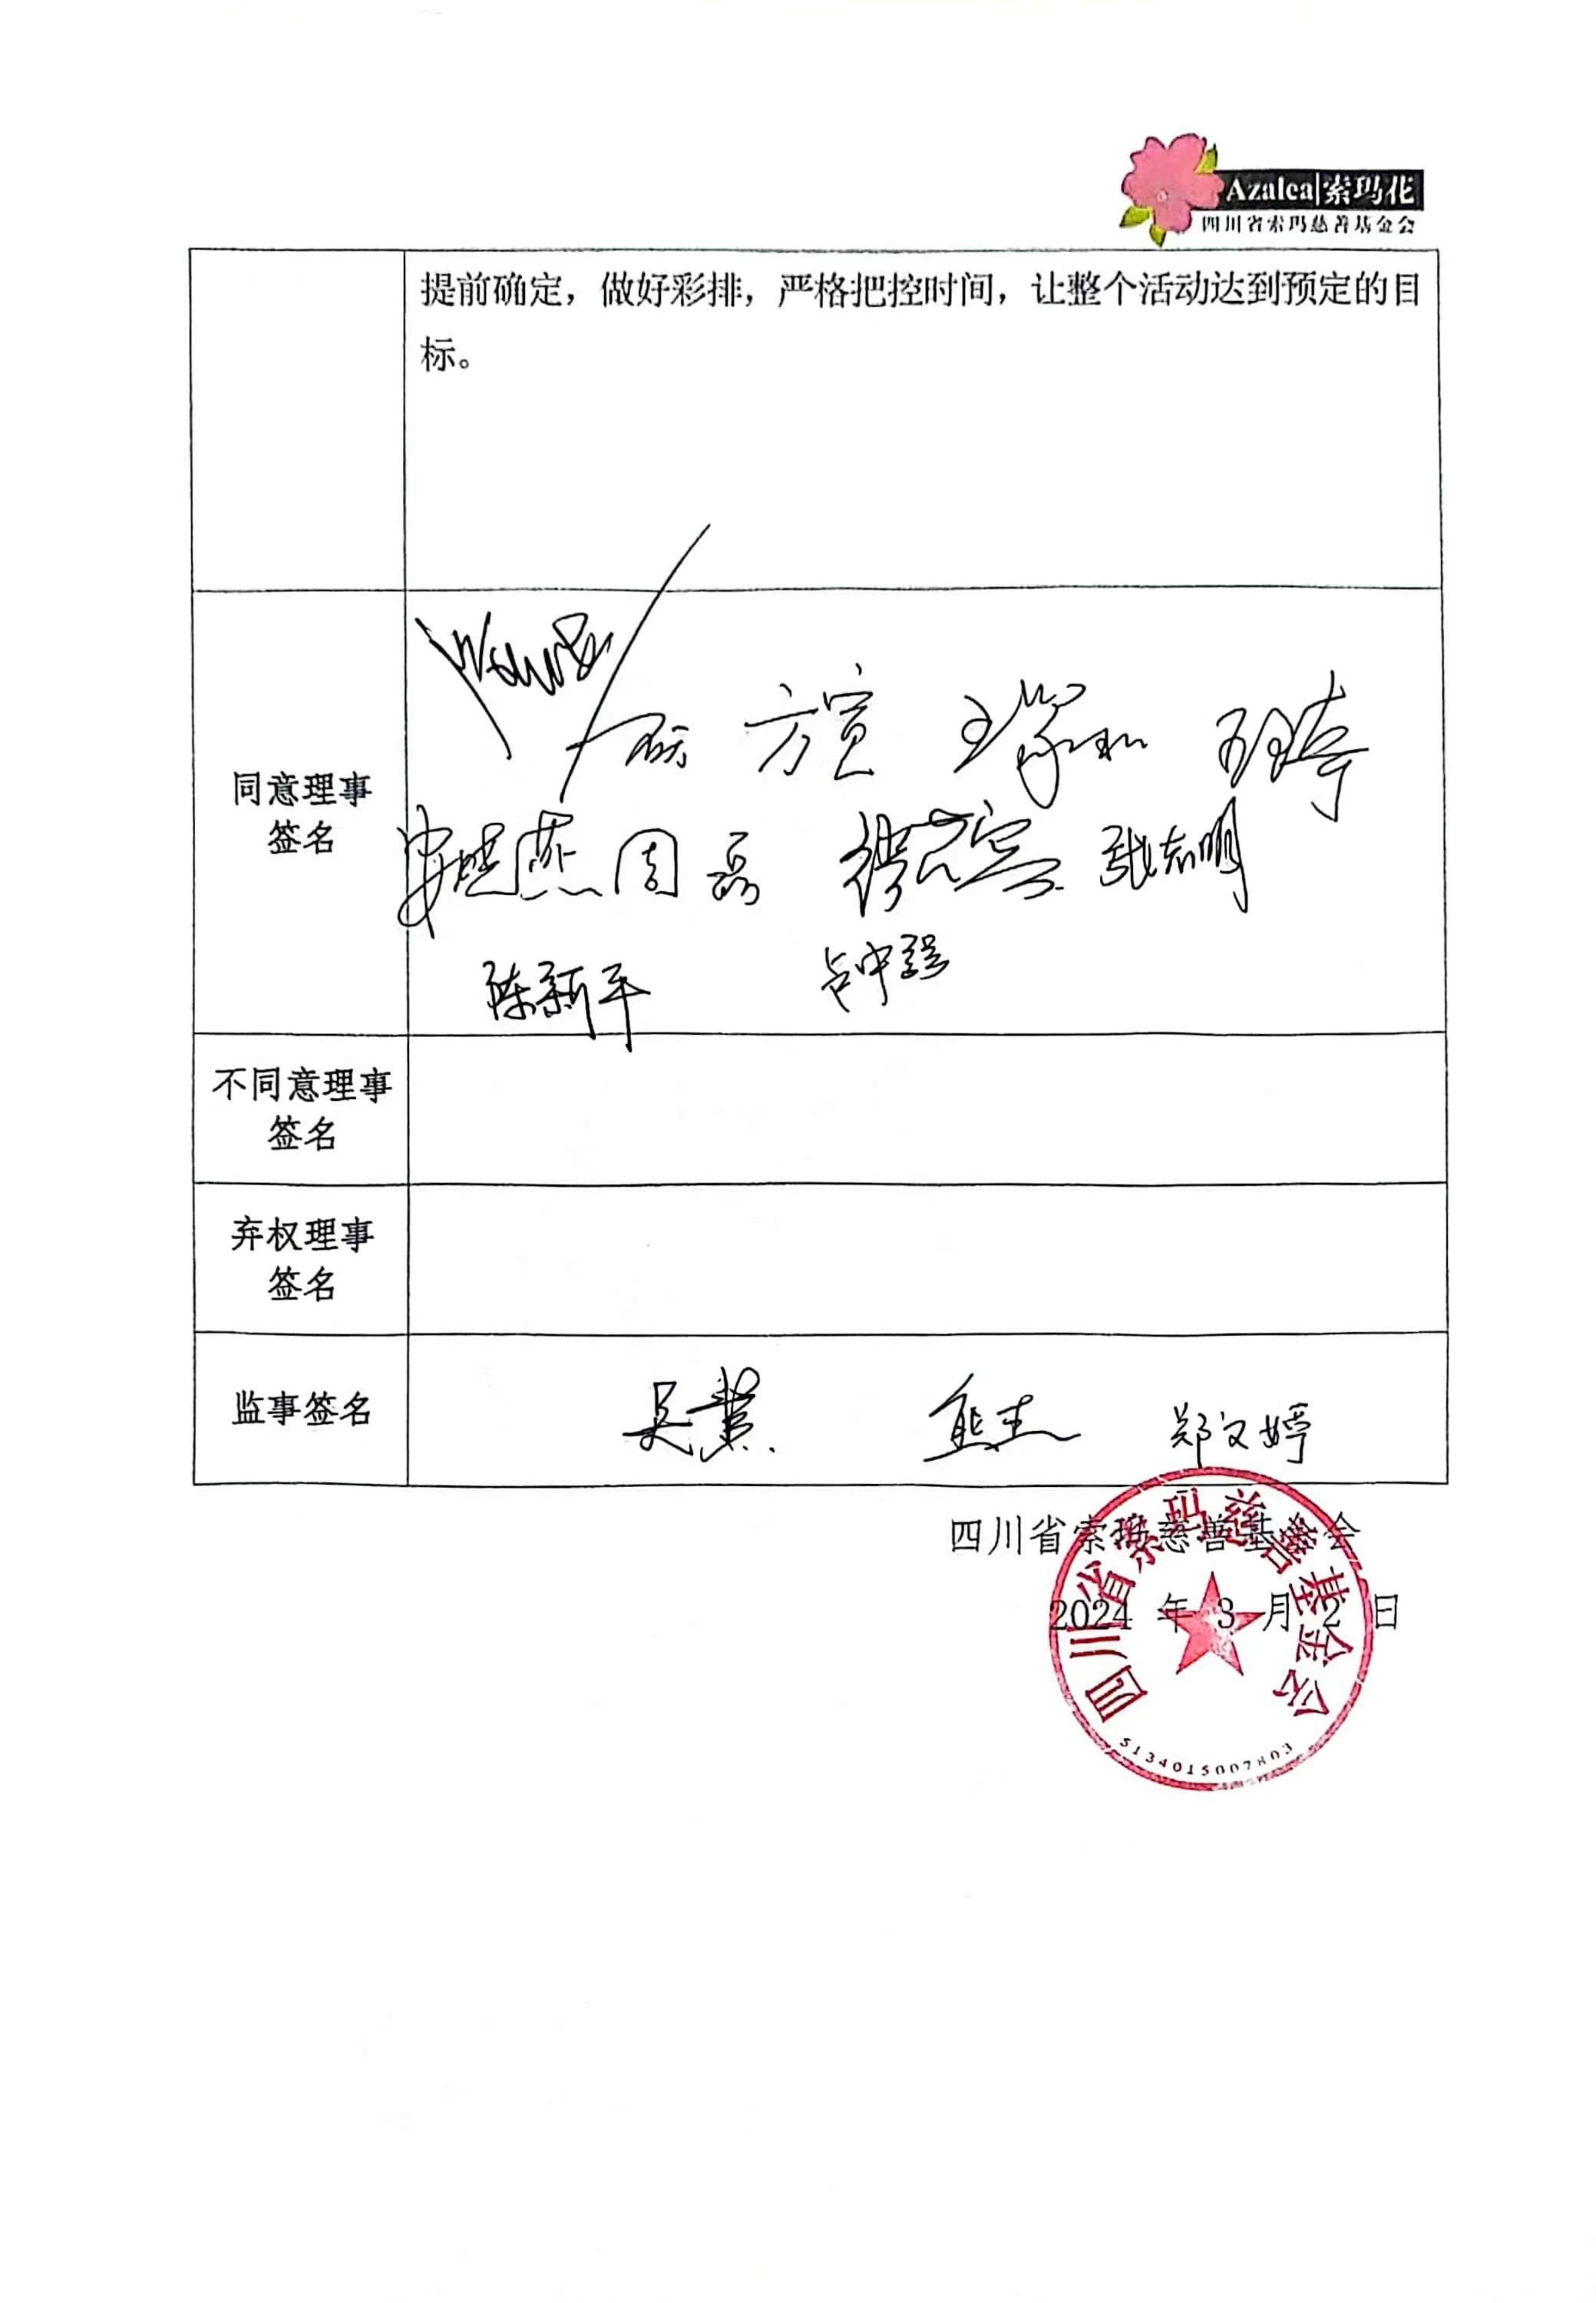 Azalea|索玛花
四川省索玛慈善基金会
提前确定，做好彩排，严格把控时间，让整个活动达到预定的目
标。
同意理事
签名
方宽
周磊 张志明
陈新平
不同意理事
签名
弃权理事
签名
监事签名
吴业 熊杰 郑文婷
四川省索玛慈善基金会
2024 年 3 月 2 日
四川省索玛慈善基金会
5134015007803